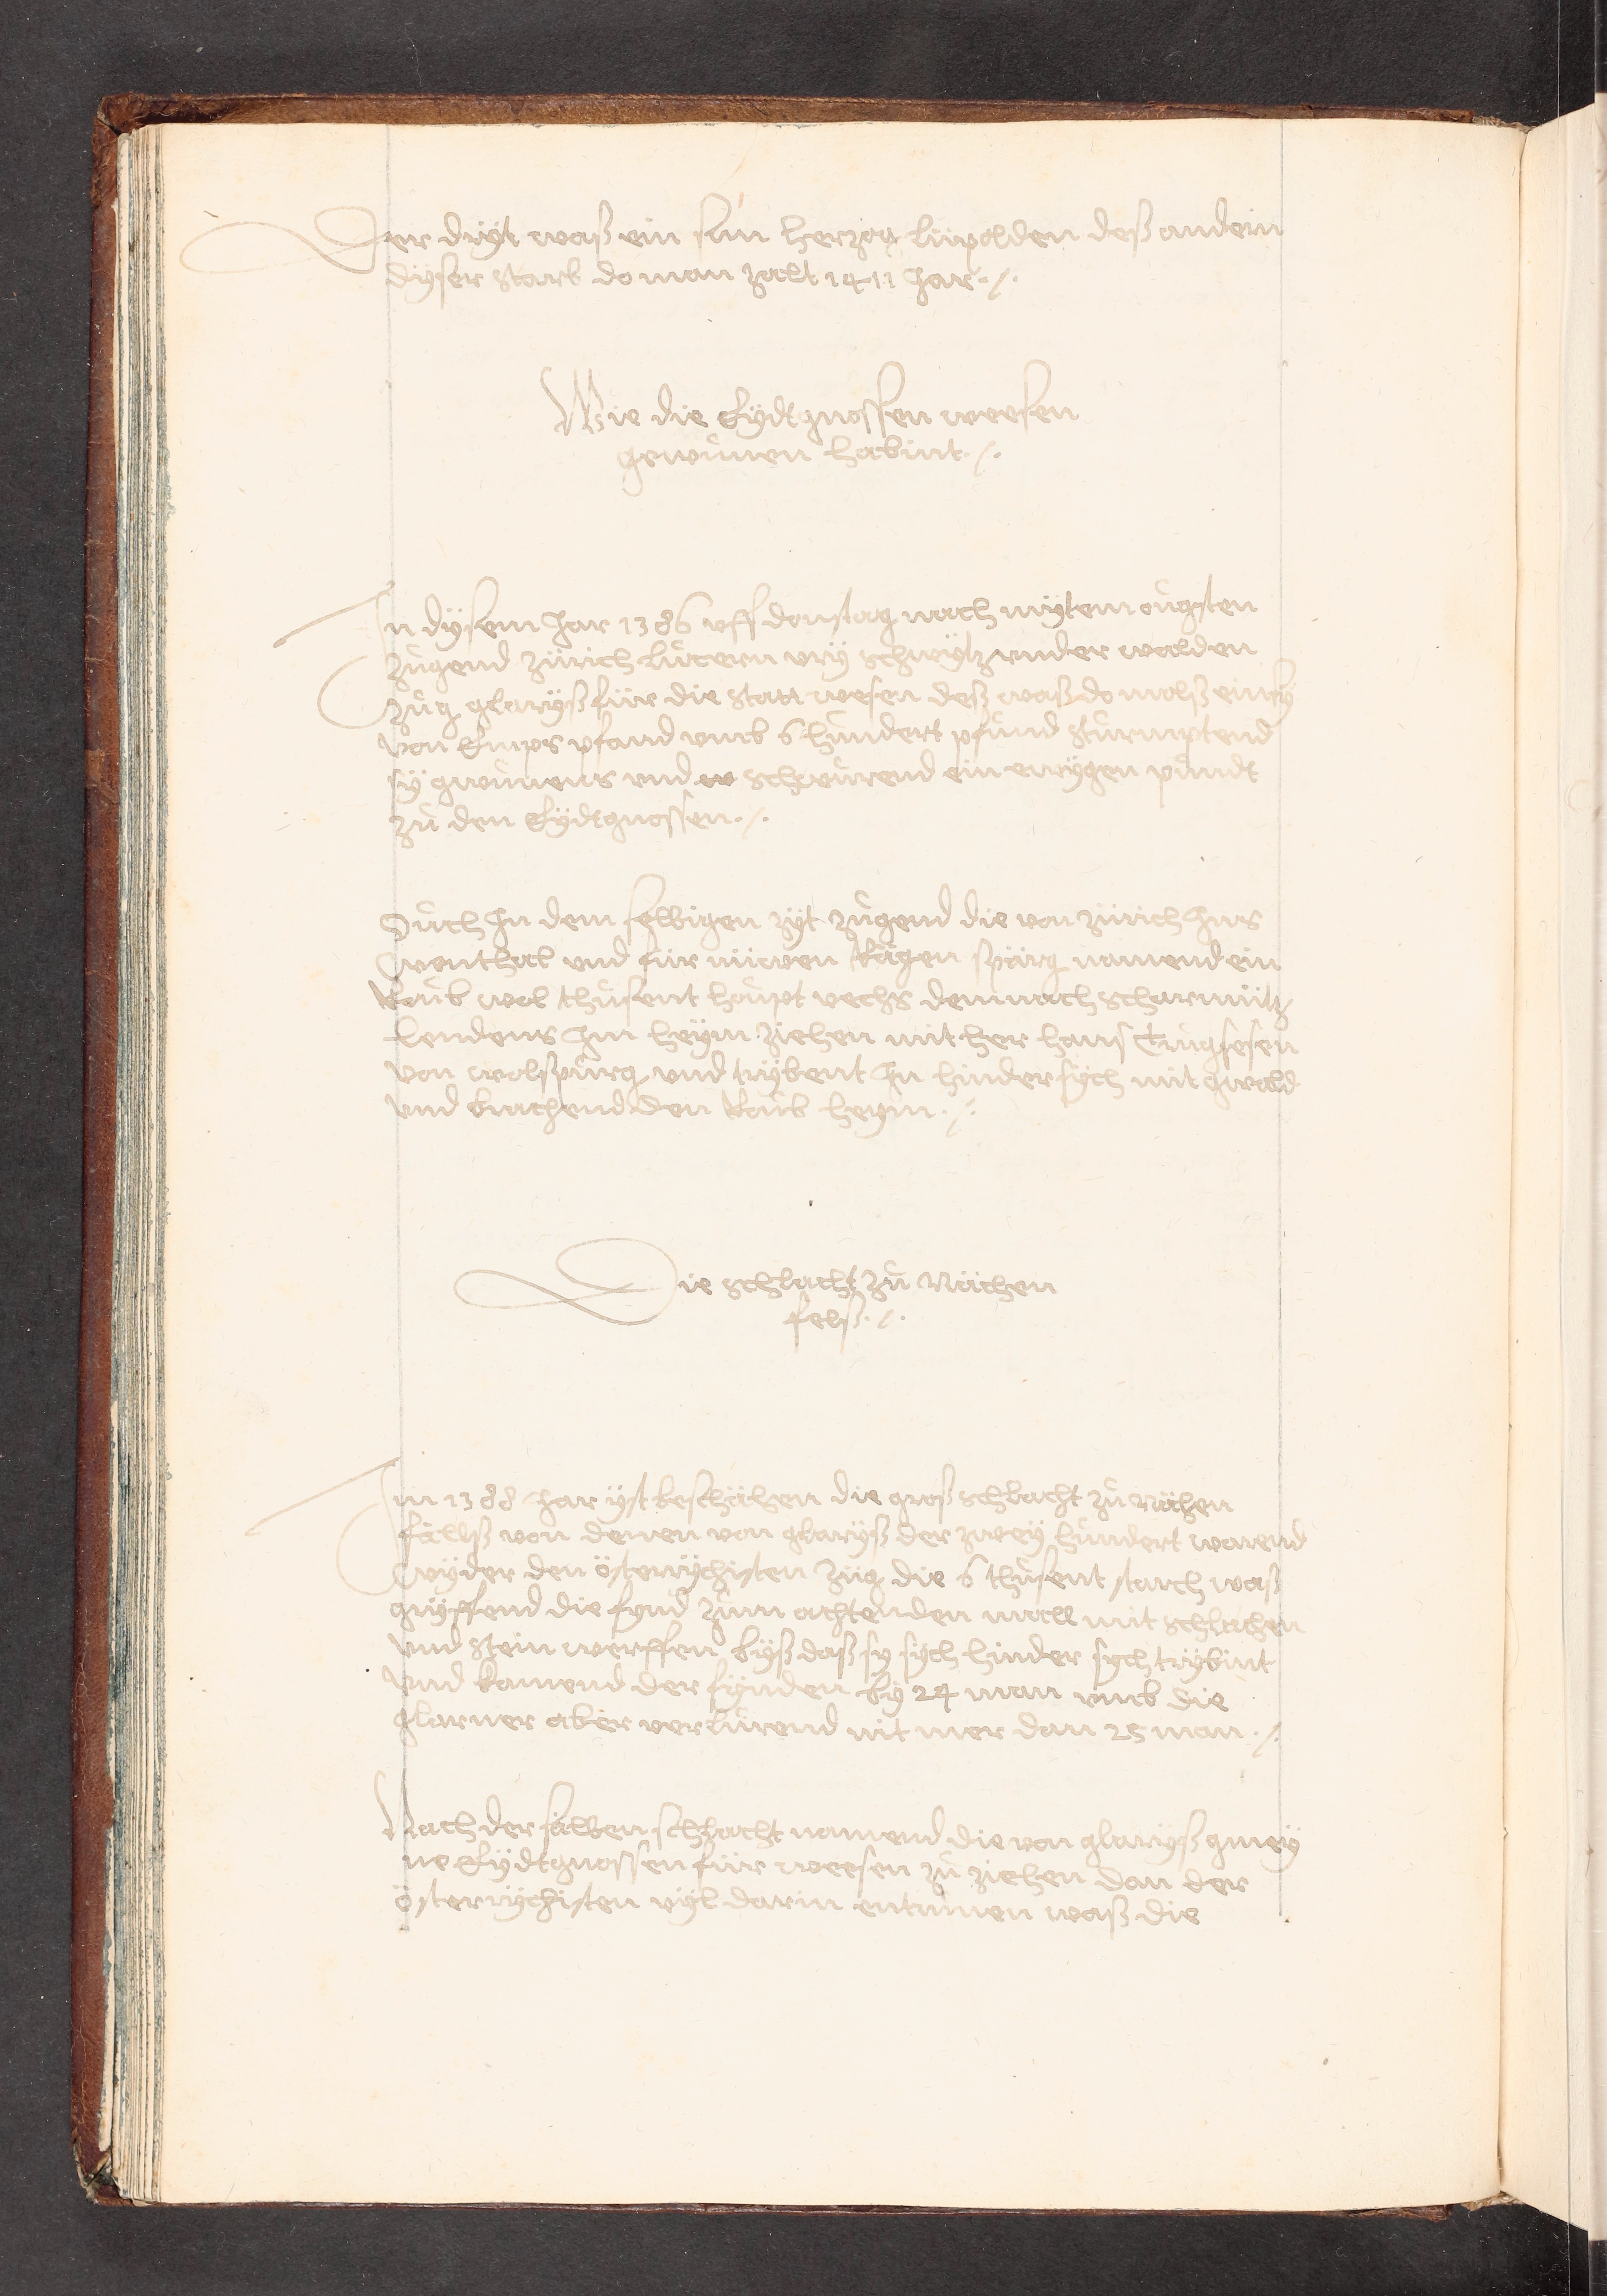 Der dryt waß ein sun herzog lüpolden deß andern
dyser starb do man zalt 1411 jar ./.
Wie die Eydtgnossen weesen
gewunen habint ./.
In dysem jar 1386 uff donstag nach mytem ougsten
zugend zürich lucern ury schwytz under walden
zug glaryß für die statt wesen deß waß do molß eins
von Emps pfand umb 6 hundert pfund sturmptend
sy gwunens und schwurend ein ewygen pundt
zu den Eydtgnossen ./.
Ouch In dem selbigen zyt zugend die von zürich Ins
wental und für nüwen Rägen spärg namend ein
Roub wol thusent houpt vechs demnach scharmütz
lendens Im heym ziehen mit her hans Trugsesen
von wolspurg und trybent In hinder sych mit gwald
und brachend den Roub heym ./.
Die schlacht zu Nächen
felß ./.
Im 1388 Jar yst beschähen die groß schlacht zu Nächen
fälß von denen von glaryß der zwey hundert warend
wyder den österrychisten züg die 6 thusent starch waß
gryffend die fynd zum achtenden mall mit schlachen
und stein werffen byß daß sy sych hinder sych trybint
und kamend der fynden by 24 man umb die
glarner aber verlurend nit mer dan 25 man ./.
Nach der sälben schlacht namend die von glaryß gmey
ne Eydtgnossen für weesen zu ziehen dan der
österrychisten vyl darin entrunen waß die